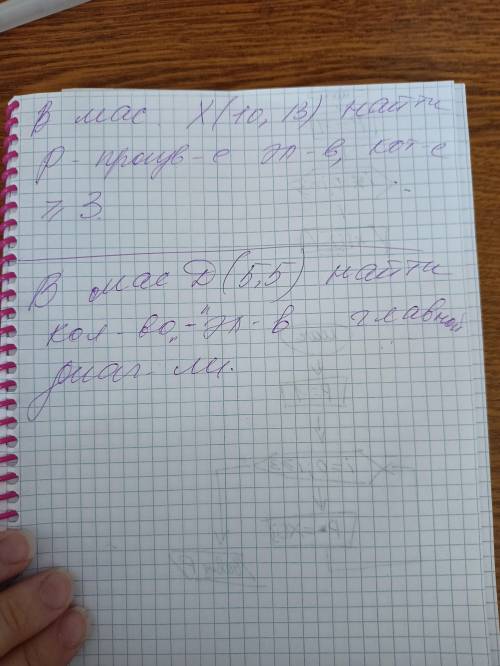 В мас. X(10, 13) найти
P - произв-е эл-в, кот-е
≥ 3.
В мас Д(5,5) найти
кол-во „-" эл-в главной
диаг-ли.